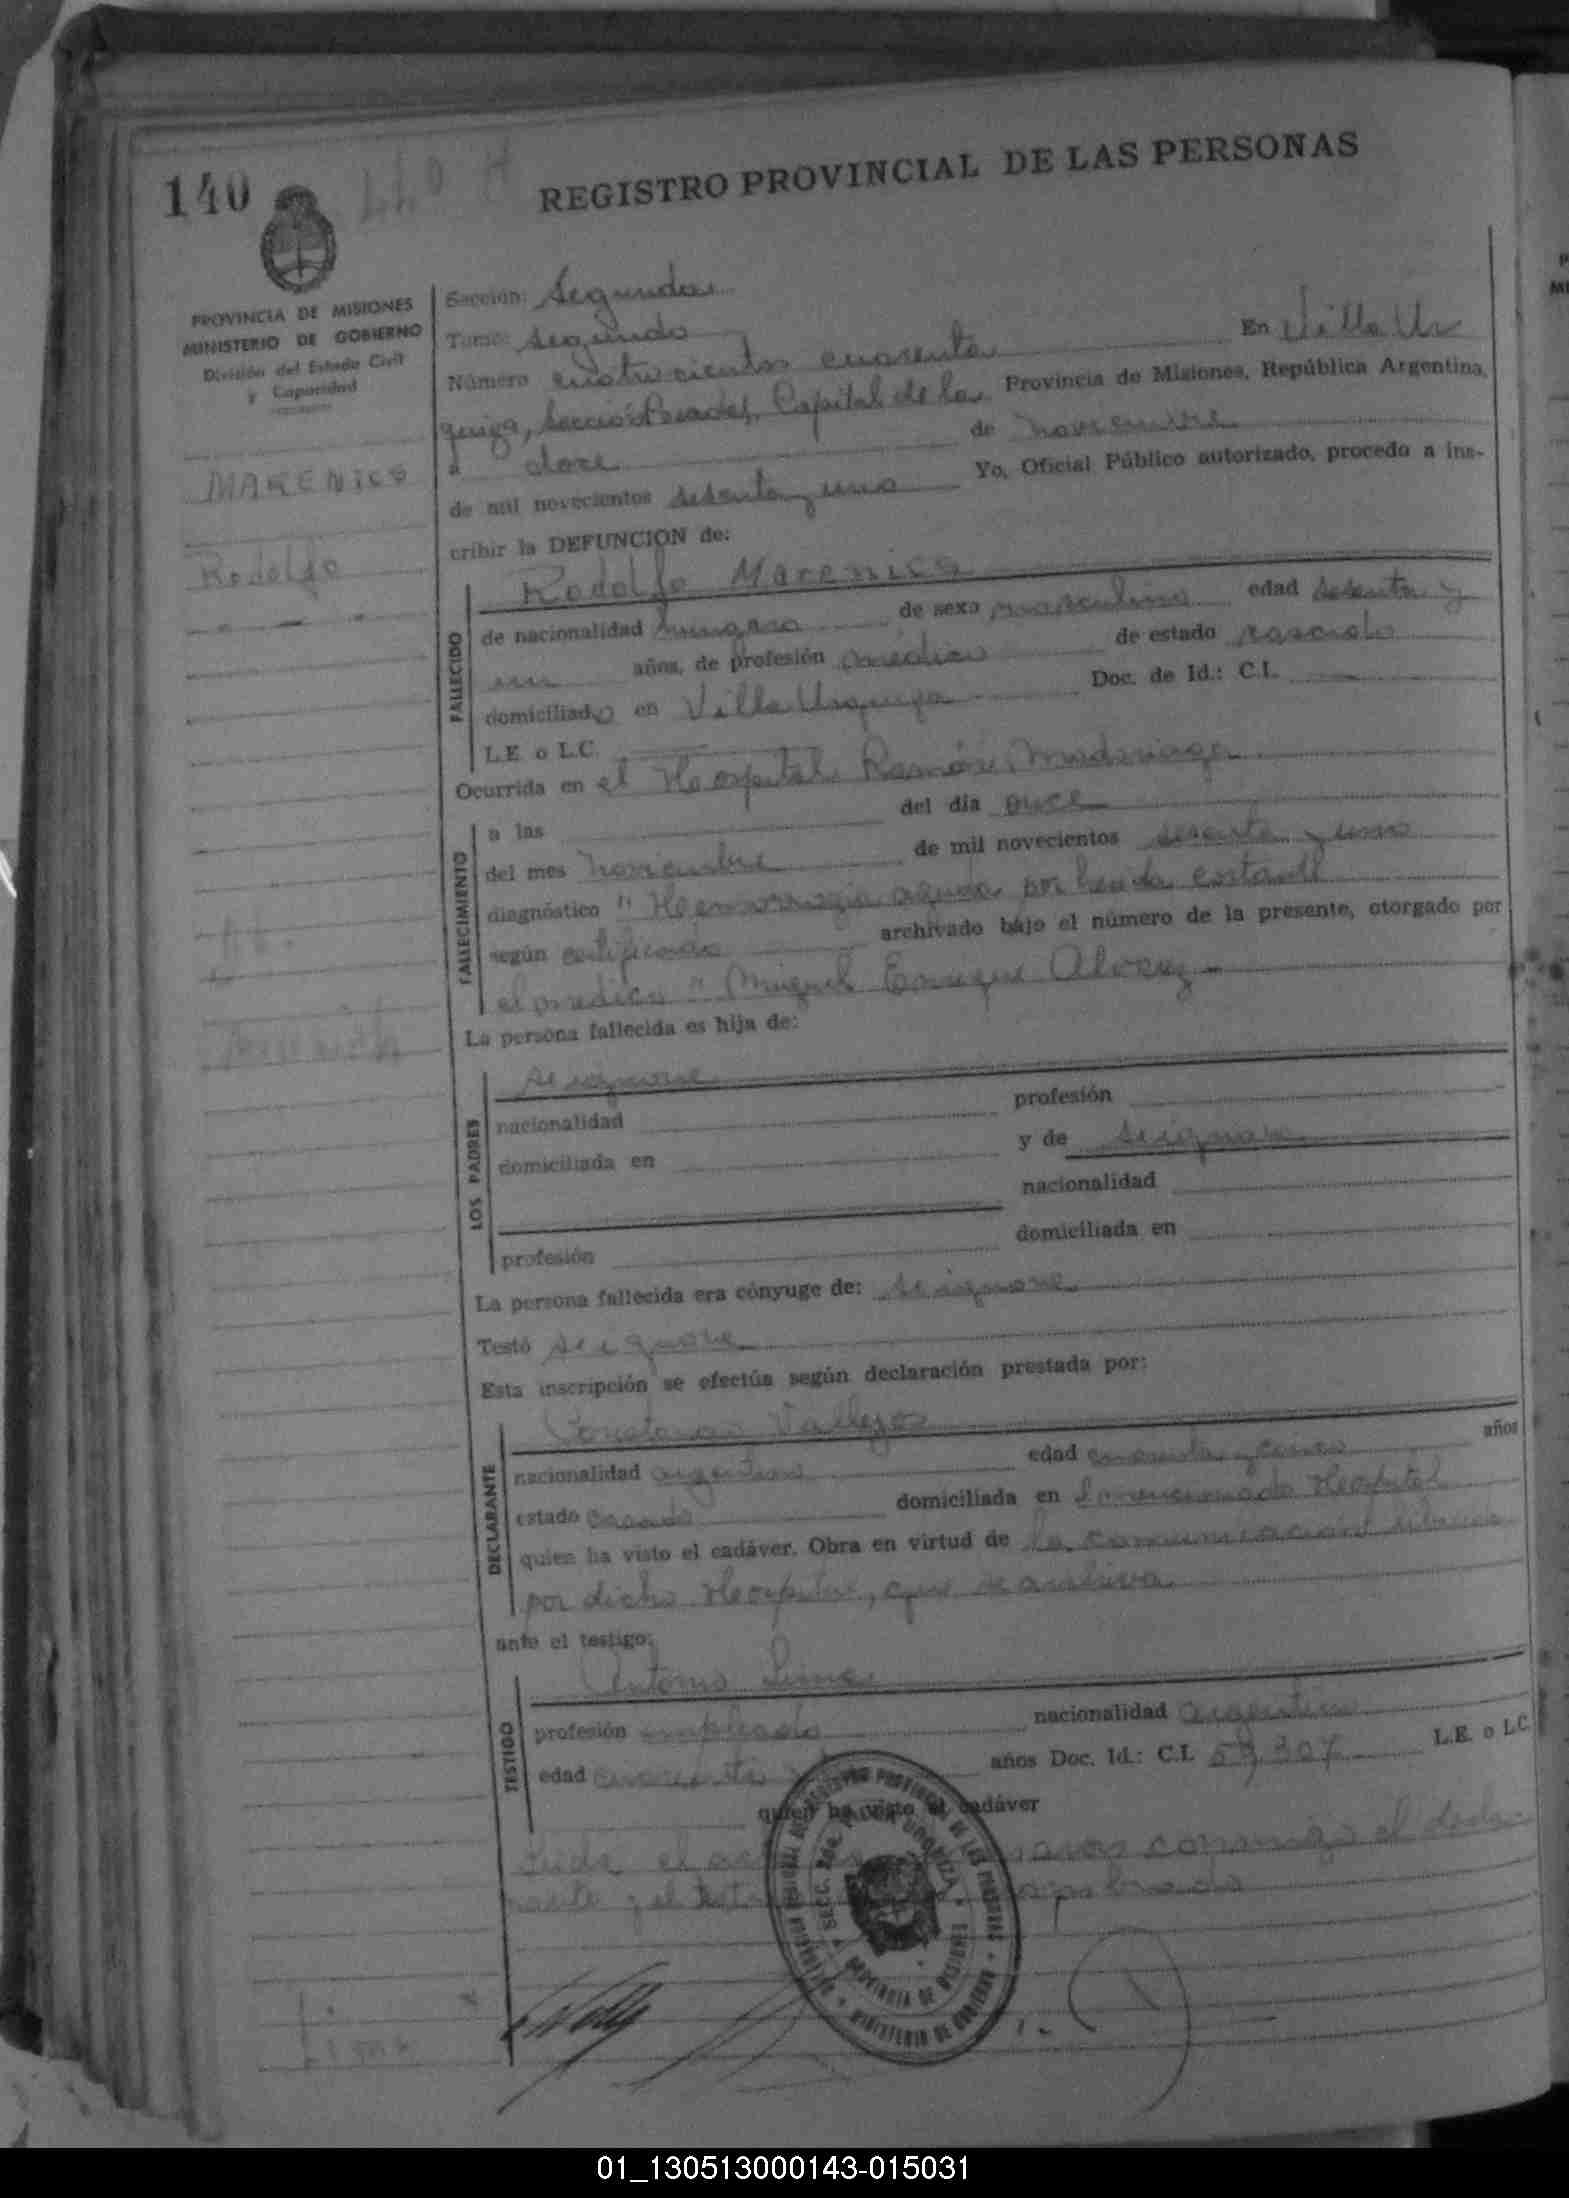 140
440 H
REGISTRO PROVINCIAL DE LAS PERSONAS
PROVINCIA DE MISIONES
MINISTERIO DE GOBIERNO
División del Estado Civil
y Capacidad
MARENICS
Rodolfo
Sección: Segunda
Tomo: segundo
Número cuatrocientos cuarenta En Villa Ur
quiza, Posadas, Capital de la Provincia de Misiones, República Argentina,
a doce de noviembre
de mil novecientos sesenta y uno Yo, Oficial Público autorizado, procedo a ins-
cribir la DEFUNCION de:
FALLECIDO
Rodolfo Marenics
de nacionalidad hungara de sexo masculino edad sesenta y
un años, de profesión médico de estado casado
domiciliado en Villa Urquiza Doc. de Id.: C.I.
L.E. o L.C.
Ocurrida en el Hospital Ramón Madariaga
FALLECIMIENTO
a las del día once
del mes noviembre de mil novecientos sesenta y uno
diagnóstico "Hemorragia aguda por herida cortante
según certificado archivado bajo el número de la presente, otorgado por
el medico "Miguel Enrique Alvarez
La persona fallecida es hija de:
LOS PADRES
se ignora
nacionalidad profesión
domiciliada en y de se ignora
nacionalidad
profesión domiciliada en
La persona fallecida era cónyuge de: se ignora
Testó se ignora
Esta inscripción se efectúa según declaración prestada por:
DECLARANTE
Vallejos
nacionalidad argentino edad cuarenta y cinco años
estado casado domiciliada en el mencionado Hospital
quien ha visto el cadáver. Obra en virtud de la comunicación
por dicho Hospital, que se archiva
ante el testigo:
TESTIGO
Antonio Lima
profesión empleado nacionalidad argentino
edad cuarenta años Doc. Id.: C.I. 59.307 L.E. o L.C.
quien ha visto el cadáver
Leida el acta conmigo el decla
rante y el testigo
REGISTRO PROVINCIAL DE LAS PERSONAS
MINISTERIO DE GOBIERNO
SECC. 2da. VILLA URQUIZA
PROVINCIA DE MISIONES
Lima
01_130513000143-015031